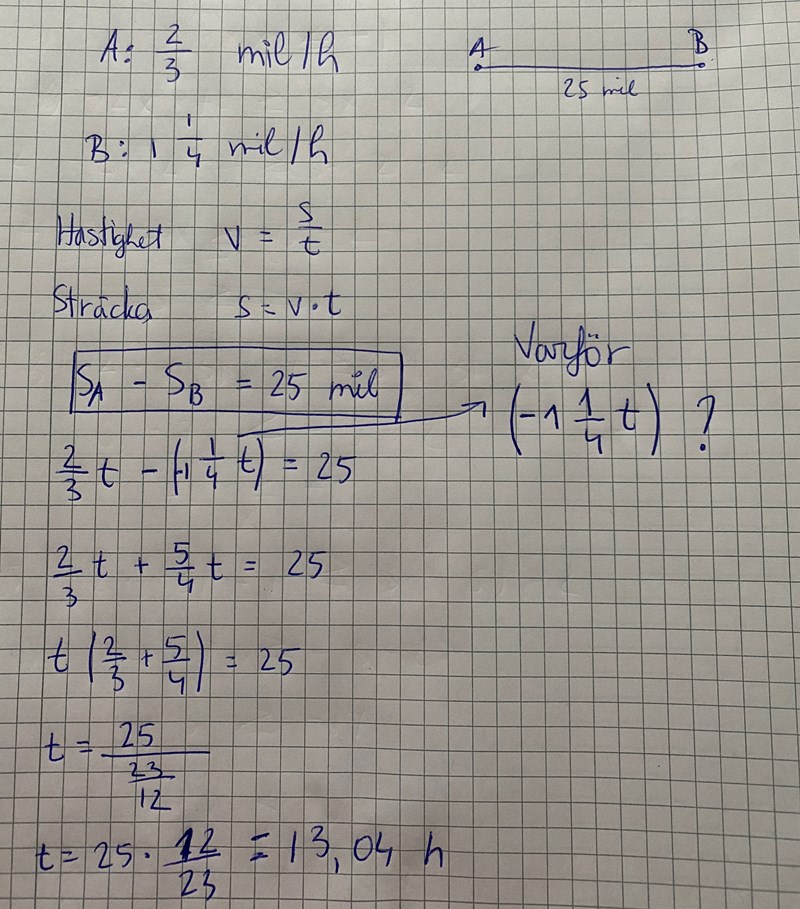 A: 2/3 mil/h
A B
25 mil
B: 1 1/4 mil/h
Hastighet v = s/t
Sträcka s = v·t
S_A - S_B = 25 mil
Varför
(-1 1/4 t) ?
2/3 t - (-1 1/4 t) = 25
2/3 t + 5/4 t = 25
t (2/3 + 5/4) = 25
t = 25/(23/12)
t = 25 · 12/23 = 13,04 h